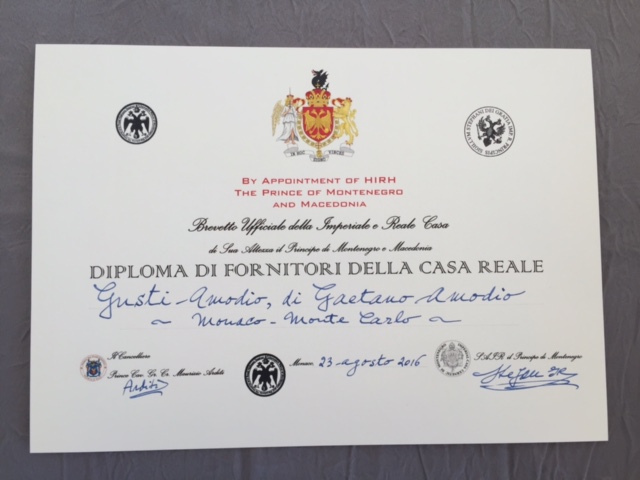 IN HOC SIGNO VINCES
SIGILLVM STEPHANI DEI GRATIA IMP. R. PRINCIPIS
BY APPOINTMENT OF HIRH
THE PRINCE OF MONTENEGRO
AND MACEDONIA
Brevetto Ufficiale della Imperiale e Reale Casa
di Sua Altezza il Principe di Montenegro e Macedonia
DIPLOMA DI FORNITORI DELLA CASA REALE
Gusti-Amodio, di Gaetano Amodio
~ Monaco - Monte Carlo ~
Il Cancelliere
Monaco, 23 agosto 2016
S.A.I.R. il Principe di Montenegro
Principe Cav. Gr. Cr. Maurizio Arditi
Arditi
Stefan